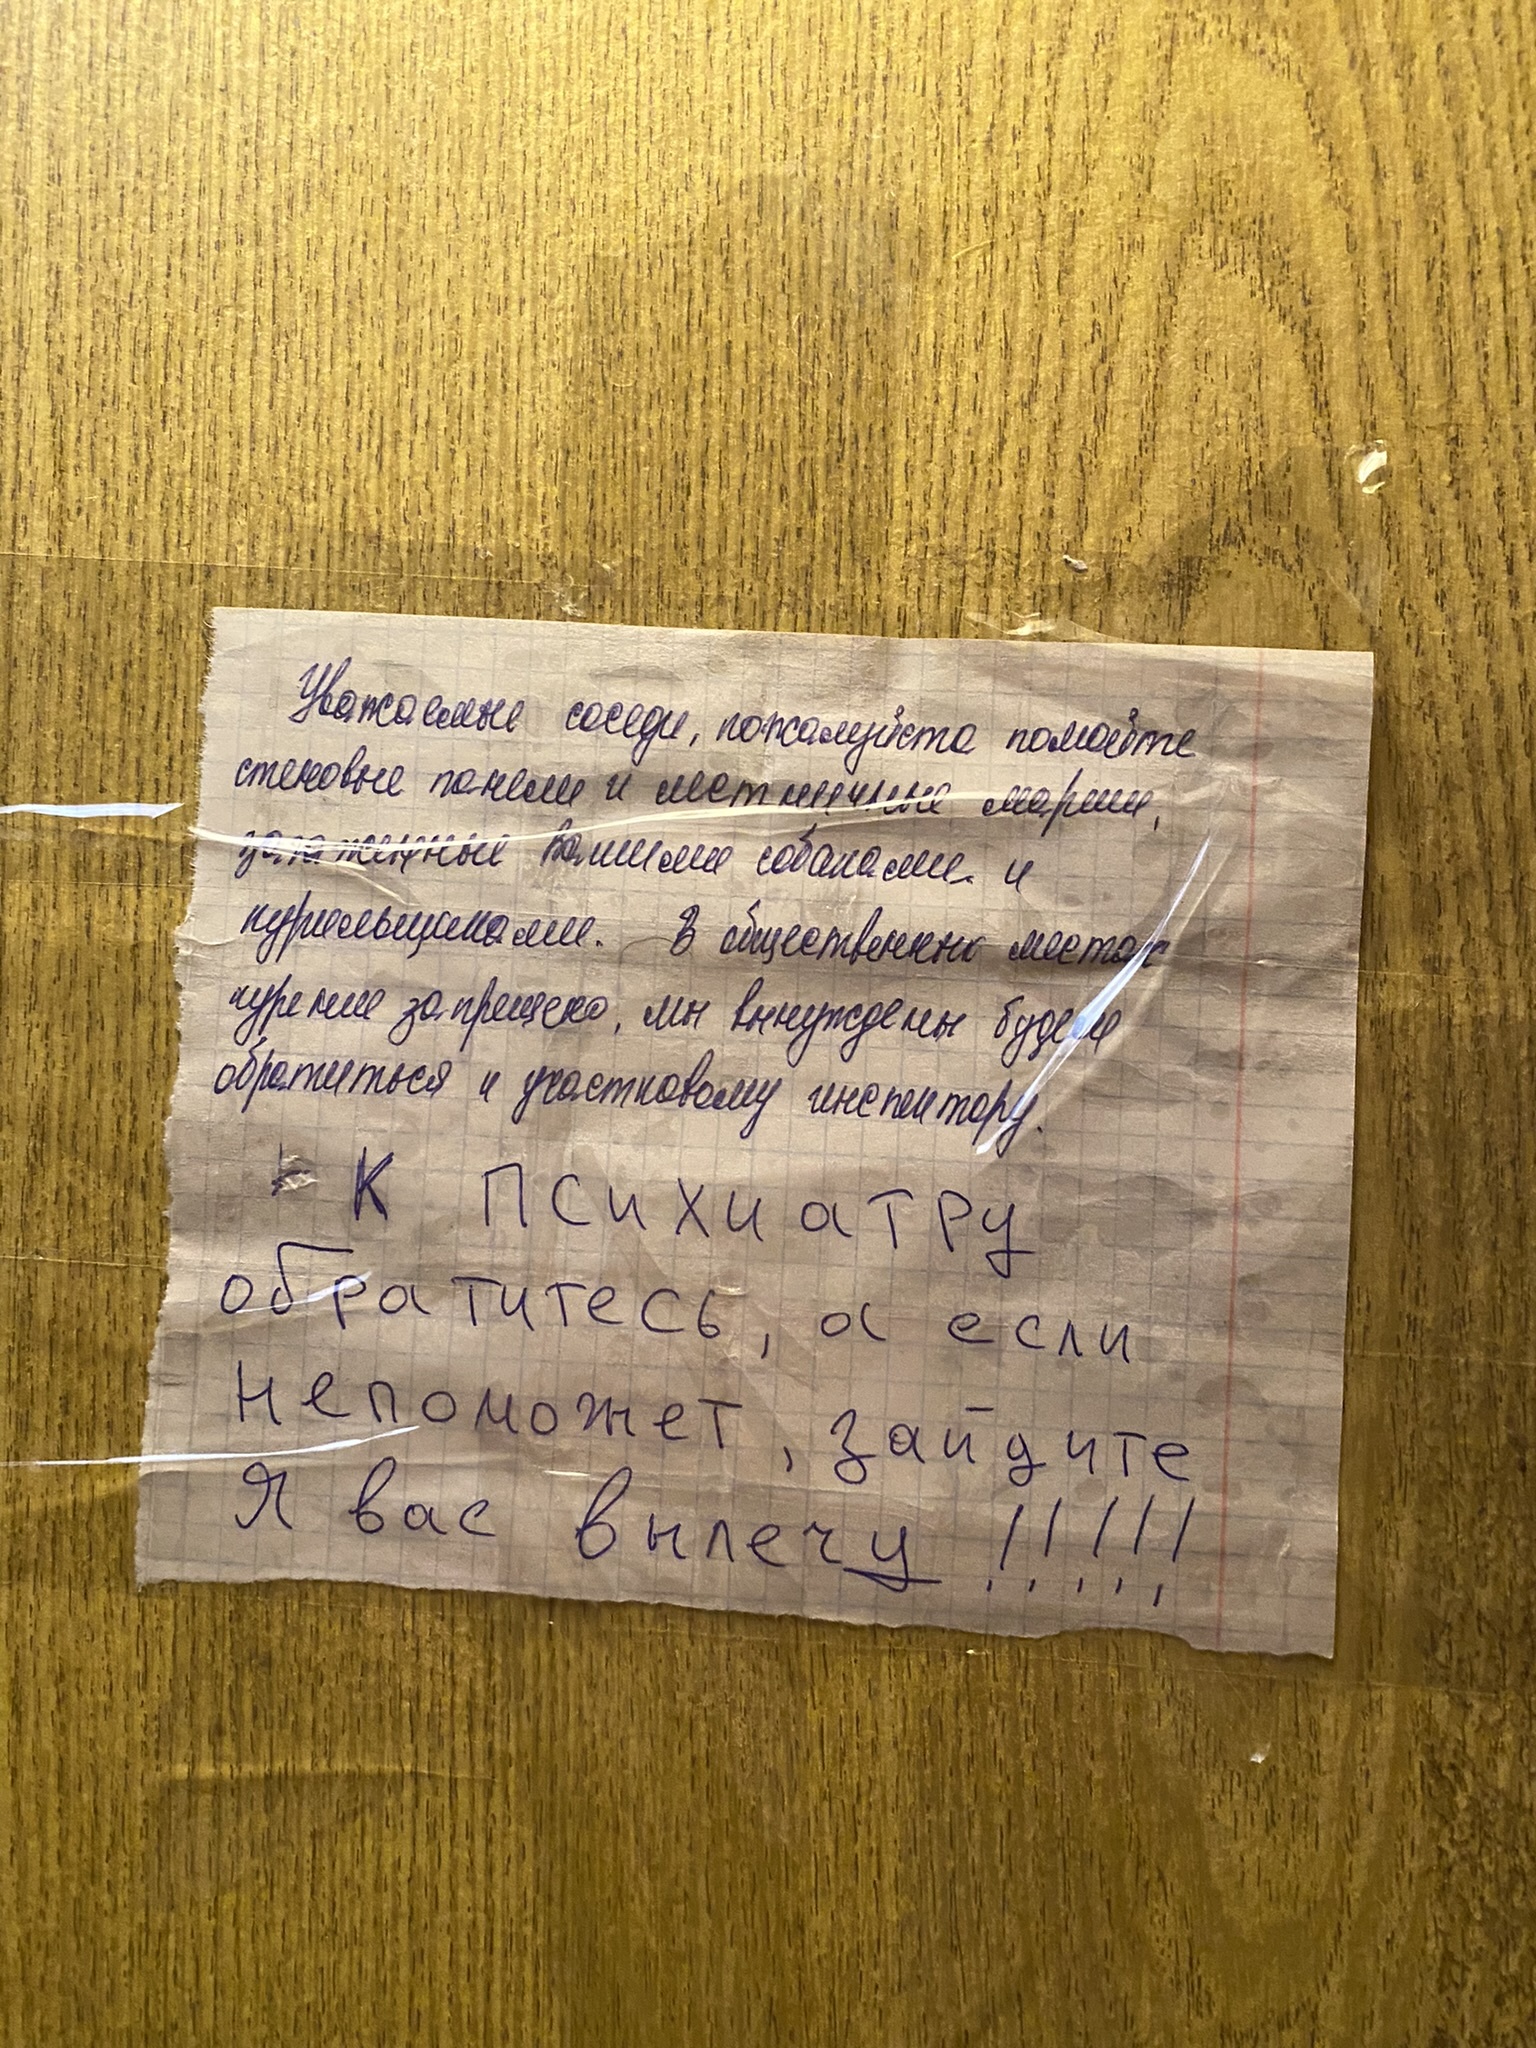 Уважаемые соседи, пожалуйста помойте
стеновые панели и лестничные марши,
загаженные вашими собаками и
курильщиками. В общественных местах
курение запрещено, мы вынуждены будем
обратиться к участковому инспектору.
К ПСИХИАТРУ
обратитесь, а если
непоможет, зайдите
Я вас вылечу !!!!!